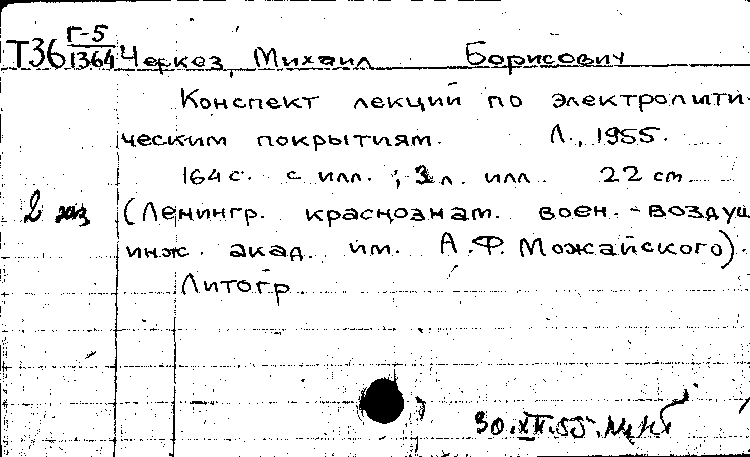 Г-5
Т36 1364 Черкез, Михаил Борисович
Конспект лекций по электролити-
ческим покрытиям. Л., 1955.
164 с. с илл.; 3 л. илл. 22 см
2 экз (Ленингр. краснознам. воен.-воздуш
инж. акад. им. А.Ф. Можайского).
Литогр
30.XII.55.